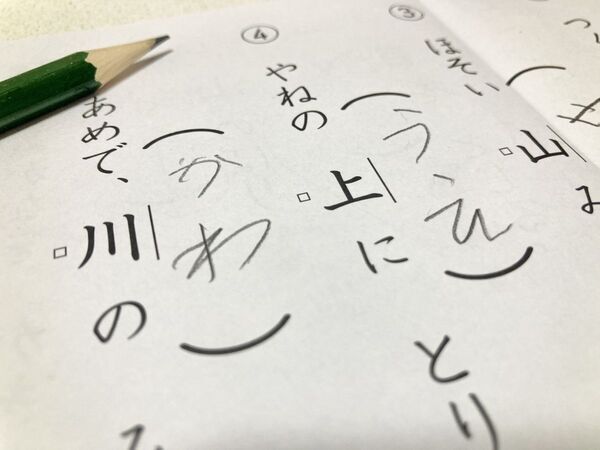 ③ほそい山
④やねの上にとり
（うえ）
あめで、川の
（かわ）